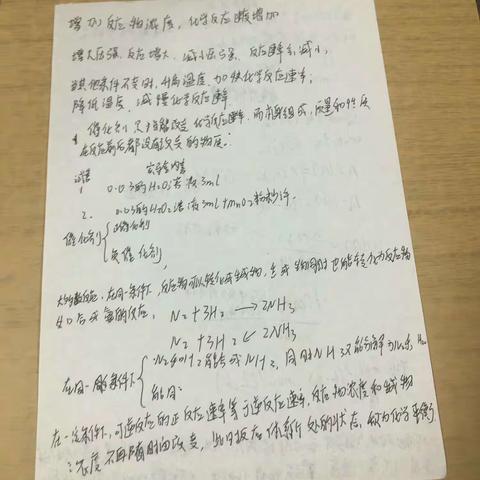 增加反应物浓度，化学反应速增加
增大压强，反应增大，减小压强，反应速率减小，
当其他条件不变时，升高温度，加快化学反应速率；
降低温度，减慢化学反应速率
催化剂 只能改变化学反应速率，而本身组成，质量和性质
在反应前后都没有改变的物质。
实验内容
1 0.03的H2O2溶液3ml
2. 0.03的H2O2溶液3ml+mnO2粉末少许
催化剂
负催化剂
在同一条件下，反应物可以转化成生成物，生成物同时也能转化为反应物
N2+3H2→2NH3
N2+3H2←2NH3
在同一条件下
N2和H2能合成NH3，同时NH3又能分解为N2和H2
能同
在一定条件下，可逆反应的正反应速率等于逆反应速率，反应物浓度和生成物
浓度不再随时间改变，此时反应体系所处的状态，称为化学平衡